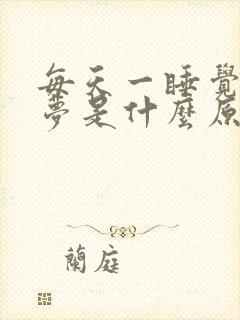 每天一睡覺
夢是什麼原
蘭庭